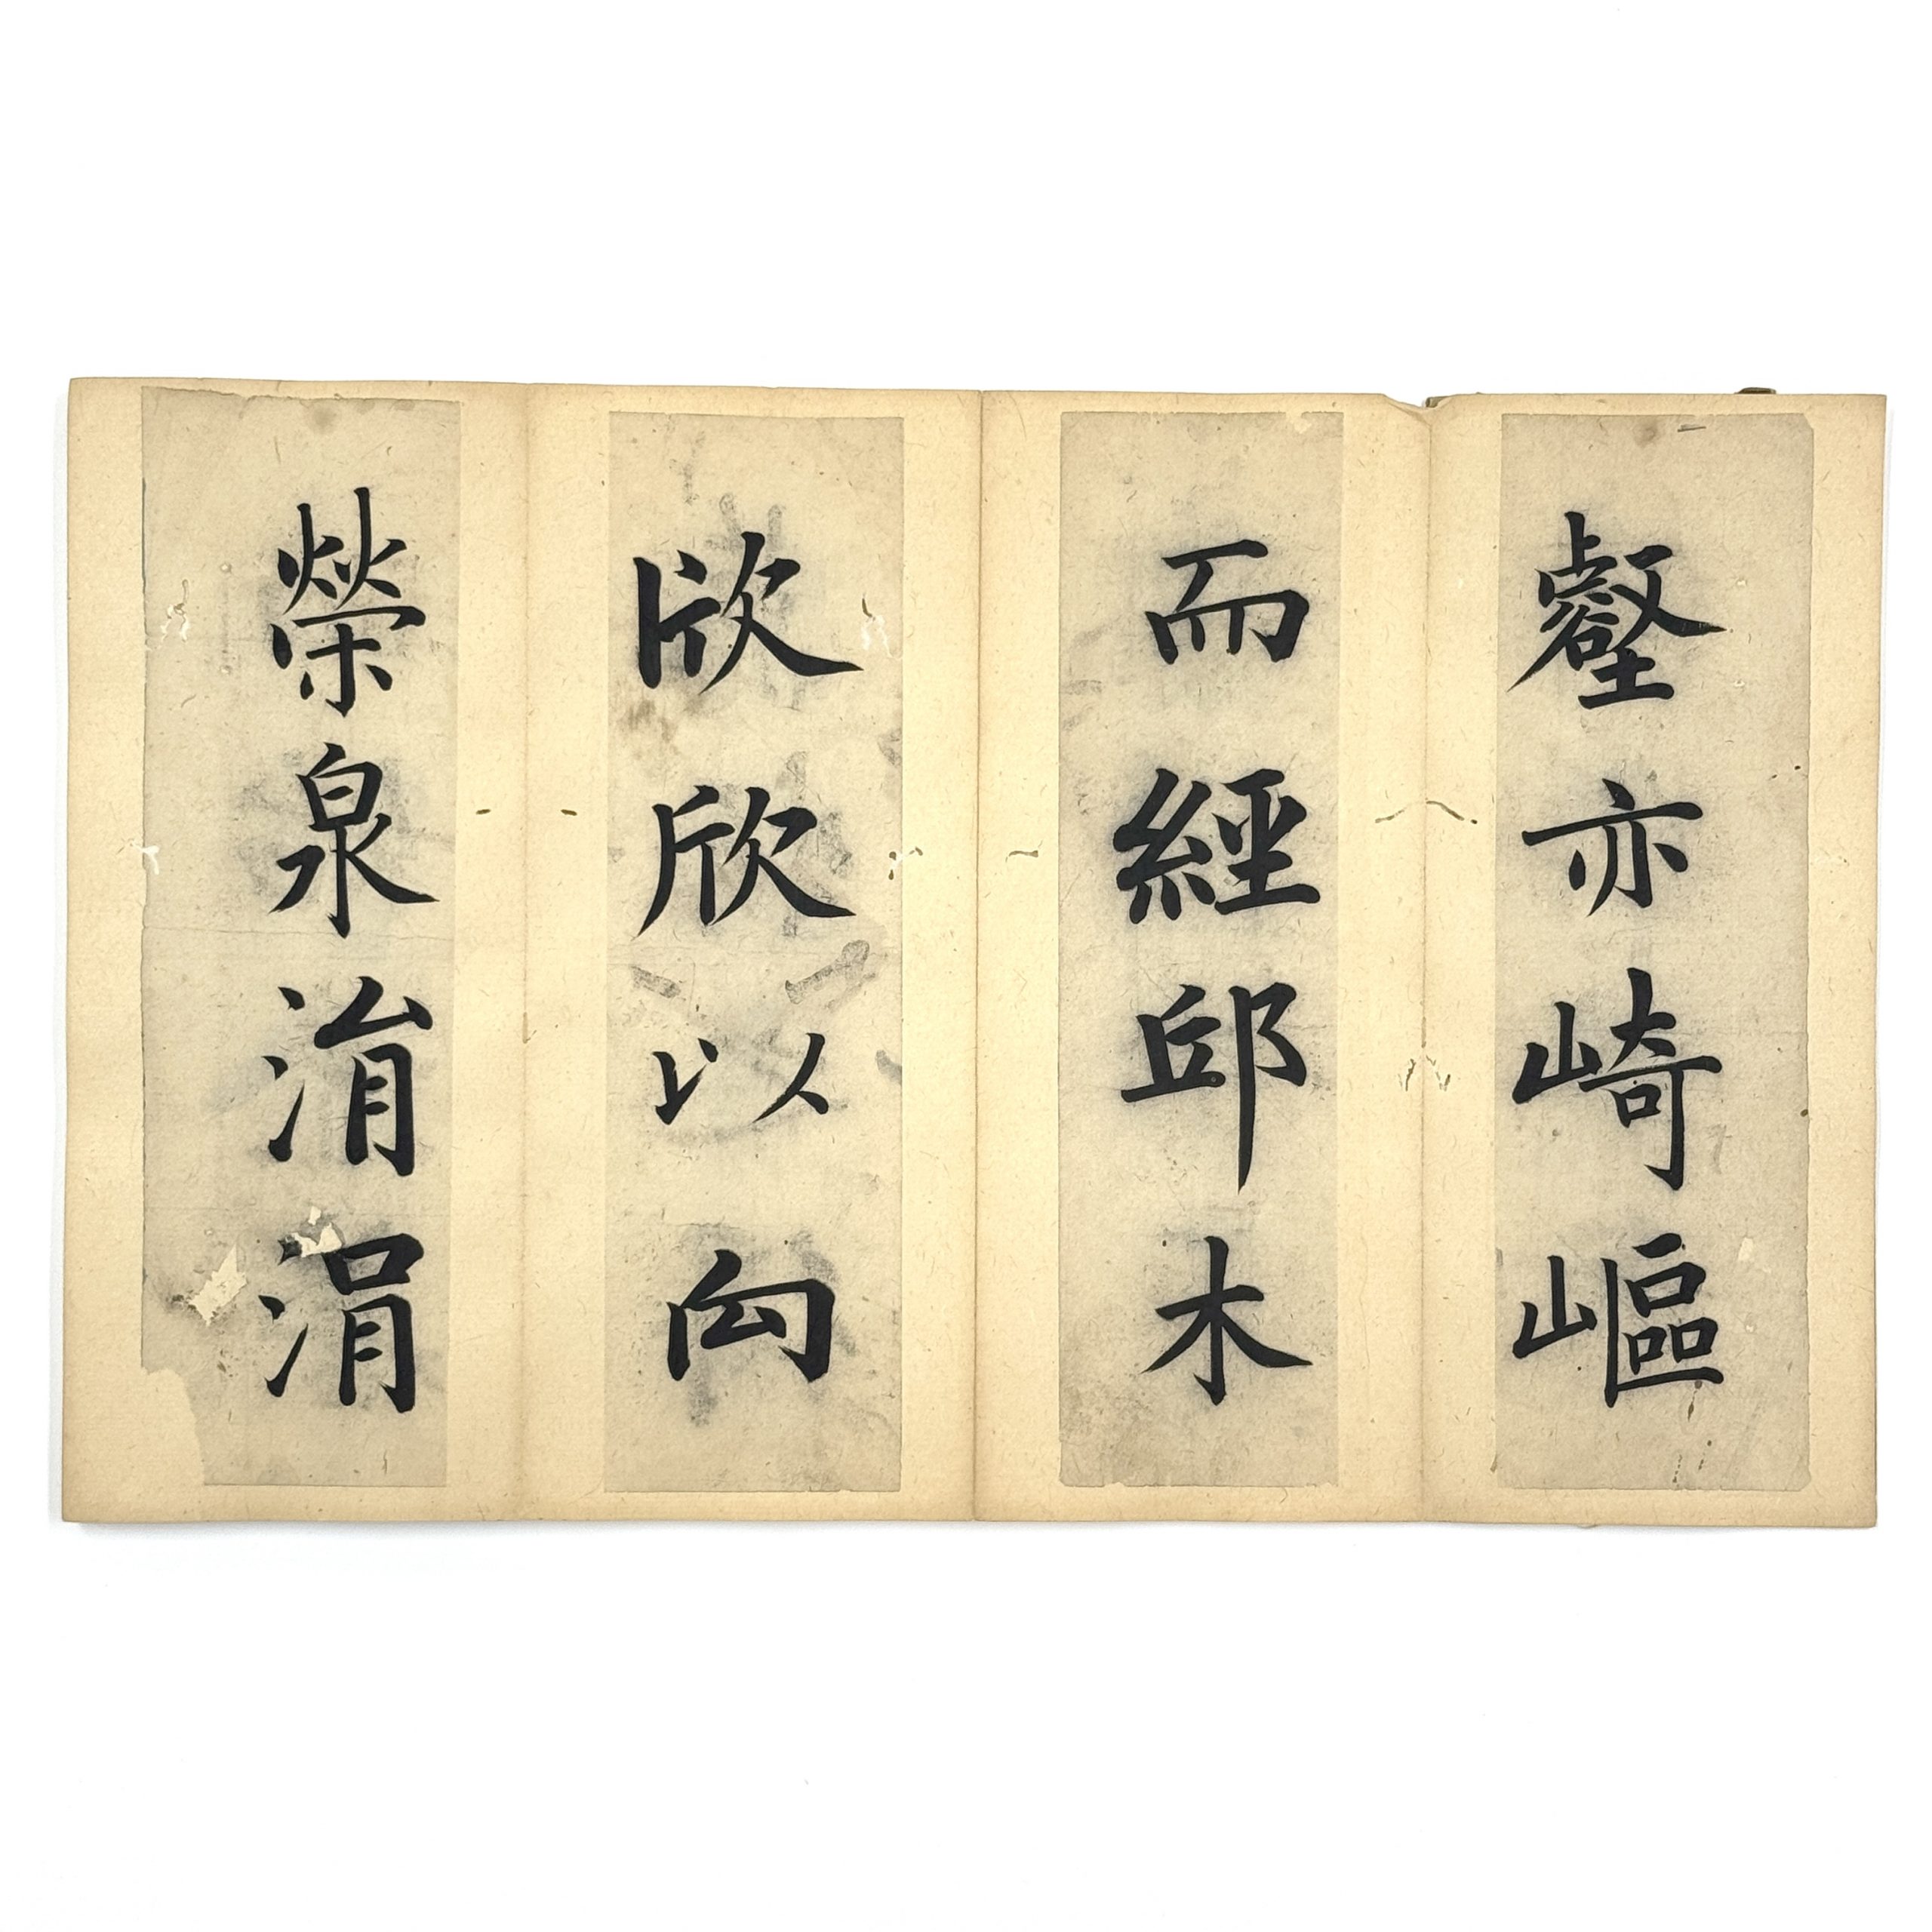 壑亦崎嶇
而經邱木
欣欣以向
榮泉涓涓